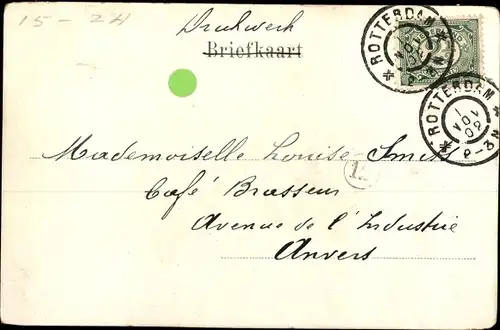 15 - 24
Drukwerk
Briefkaart
ROTTERDAM
1 NOV 02
ROTTERDAM
1 NOV 02
8-3N
Mademoiselle Louise Smits
1
Café Brasseur
Avenue de l'Industrie
Anvers